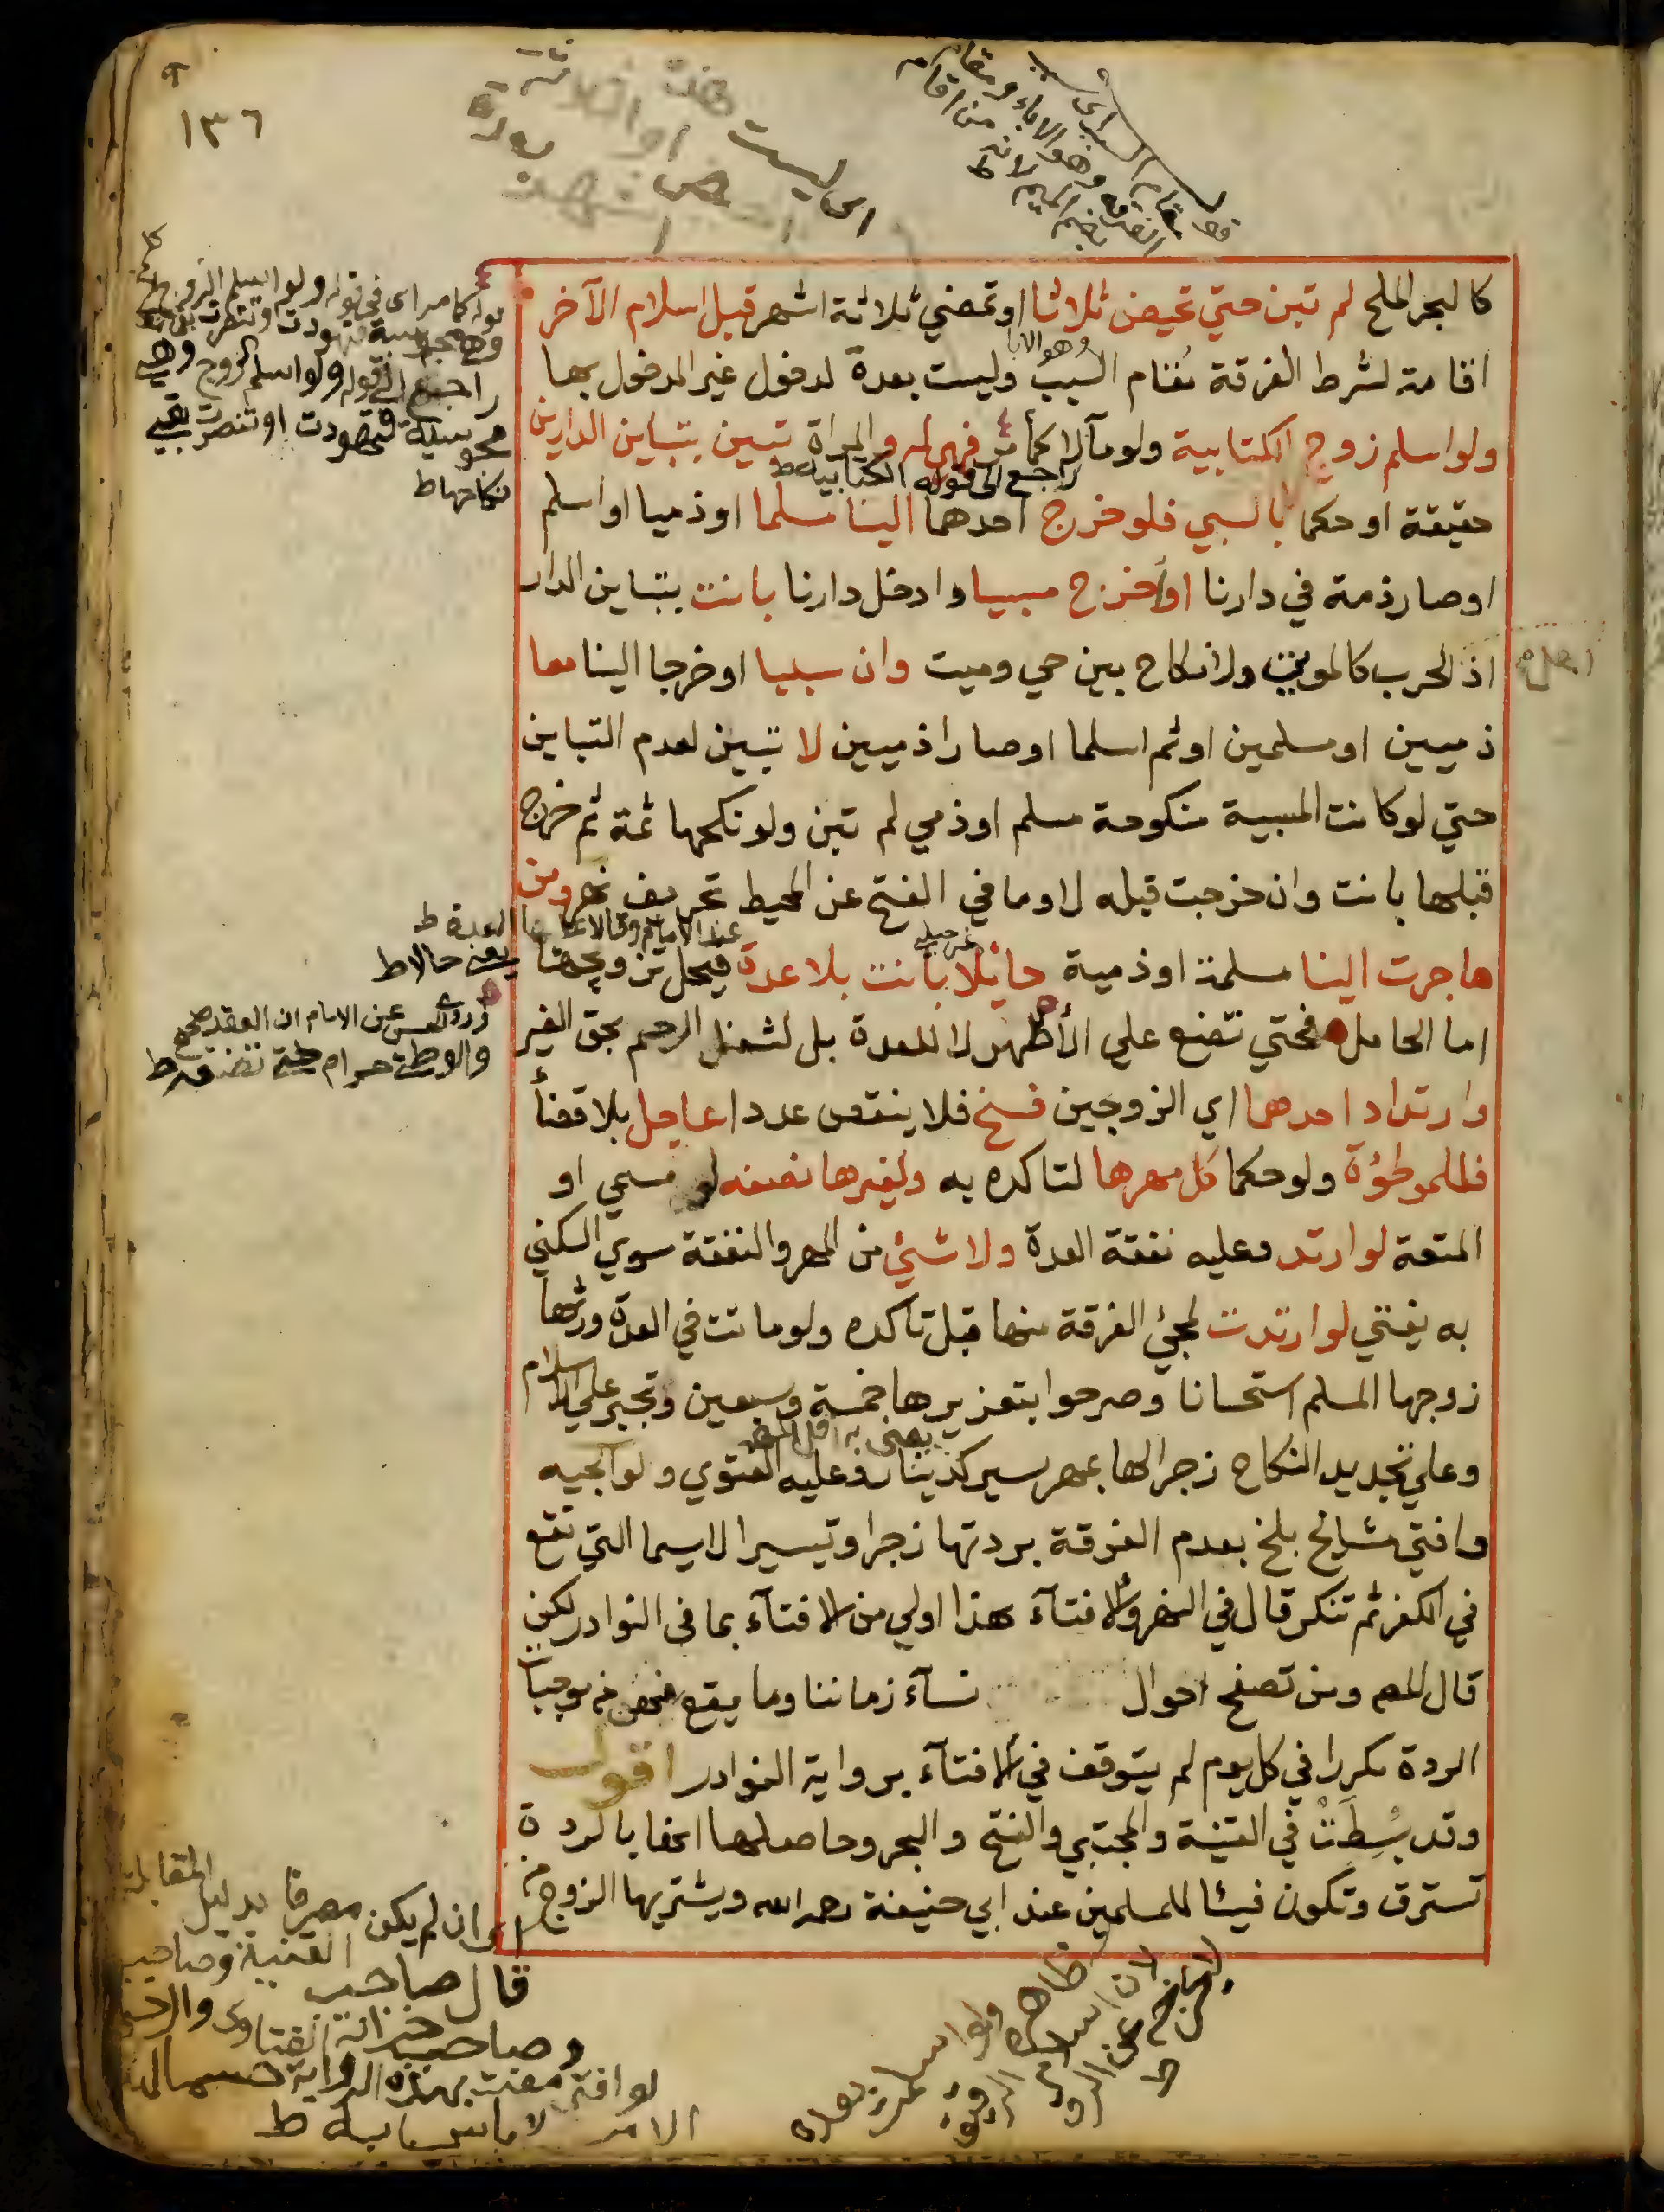 ١٣٦
كالبحر الملح لم تبن حتي تحيض ثلاثا اوتمضي ثلاثة اشهر قبل اسلام الآخر
اقامة لشرط الفرقة مُقام السبب وليست بعدة لدخول غير المدخول بها
وهو الابا
ولو اسلم زوج الكتابية ولو مآلا كما مر فهي له والمراة تبين بتباين الدارين
راجع الى قوله الكتابية ط
حقيقة اوحكما بالسبي فلو خرج احدهما الينا مسلما اوذميا او اسلم
اوصار ذمة في دارنا او اخرج مسبيا وادخل دارنا بانت بتباين الدار
اذ الحرب كالموتي ولا نكاح بين حي وميت وان سبيا اوخرجا الينا معا
ذميين اومسلمين اوثم اسلما اوصارا ذميين لا تبين لعدم التباين
حتي لوكانت المسبية منكوحة مسلم اوذمي لم تبن ولو نكحها ثمة ثم خرج
قبلها بانت وان خرجت قبله لا وما في الفتح عن المحيط تحريف نهر ومن
هاجرت الينا مسلمة اوذمية حائلا بانت بلا عدة فيحل تزوجها
غير حبلى
اما الحامل فحتي تضع علي الأظهر لا للعدة بل لشغل الرحم بحق الغير
وارتداد احدهما اي الزوجين فسخ فلا ينقص عددا عاجل بلا قضأ
فللموطوْة ولو حكما كل مهرها لتاكده به ولغيرها نصفه لو مسمي او
المتعة لو ارتد وعليه نفقة العدة ولا شئي من المهر والنفقة سوي السكني
به يفتي لو ارتدت لمجئ الفرقة منها قبل تاكده ولو ماتت في العدة ورثها
زوجها المسلم استحسانا وصرحوا بتعزيرها خمسة وسبعين وتجبر علي الاسلام
وعلي تجديد النكاح زجرا لها بمهر يسير كدينار وعليه الفتوي ولوالجيه
وافتي مشائخ بلخ بعدم الفرقة بردتها زجرا وتيسيرا لا سيما التي تقع
في الكفر ثم تنكر قال في النهر والافتآء بهذا اولي من الافتآء بما في النوادر لكن
قال المص ومن تصفح احوال نسآء زماننا وما يقع منهن من موجبات
الردة مكررا في كل يوم لم يتوقف في الافتآء برواية النوادر اقول
وقد بُسِطَتْ في القنية والمجتبي والفتح والبحر وحاصلها انها بالردة
تسترق وتكون فيئا للمسلمين عند ابي حنيفة رحمه الله ويشتريها الزوج من
قوله كما مر اى في قوله ولو اسلم الزوج
وهي مجوسية فتهودت او تنصرت
راجع الى قوله ولو اسلم الزوج وهي
مجوسية فتهودت او تنصرت بقي
نكاحها ط
يعني حالا ط
وروى الحسن عن الامام ان العقد صحيح
والوطئ حرام حتى تضع ط
اى ان لم يكن مصرفا بدليل المقابلة
قال صاحب القنية وصاحب
وصاحب خزانة الفتاوى
لو افتى مفت بهذه الرواية حسما لهذا
الامر لا باس به ط